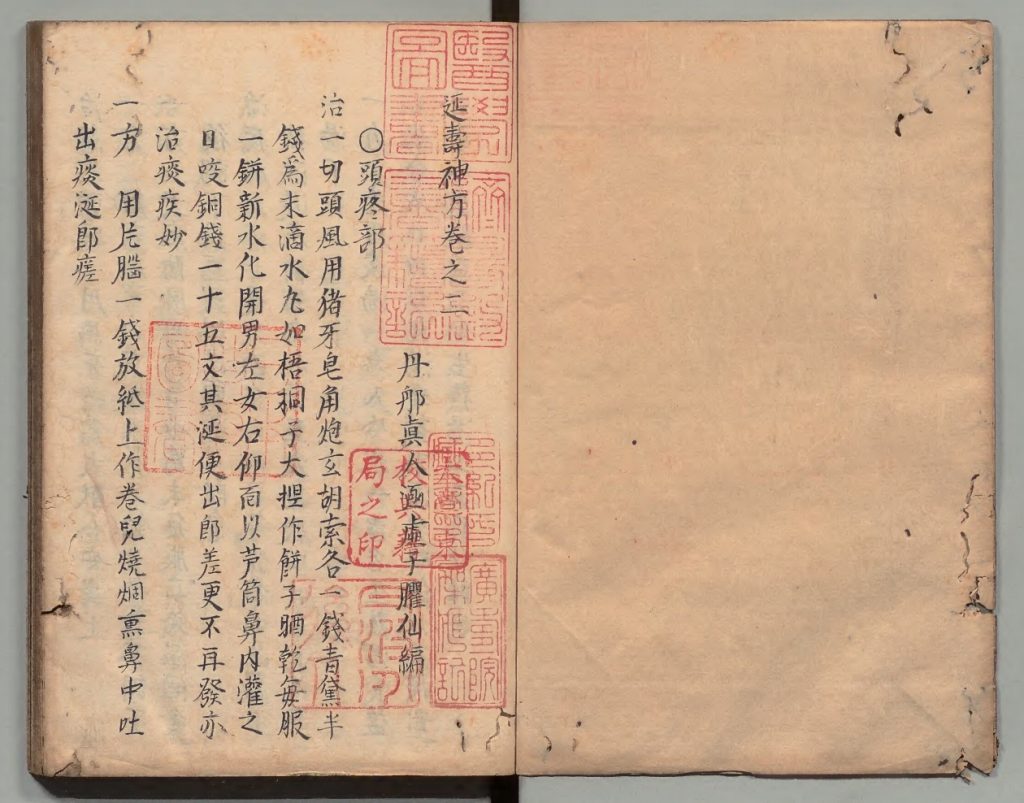 延壽神方卷之三
丹邱眞人涵虛子臞仙編
○頭疼部
治一切頭風用猪牙皂角炮玄胡索各一錢青黛半
錢為末滴水丸如梧桐子大揑作餅子晒乾每服
一餅新水化開男左女右仰面以芦筒鼻内灌之
口咬銅錢一十五文其涎便出即差更不再發亦
治痰疾妙
一方　用片腦一錢放紙上作卷兒燒烟熏鼻中吐
出痰涎即瘥
局之印
廣壽院